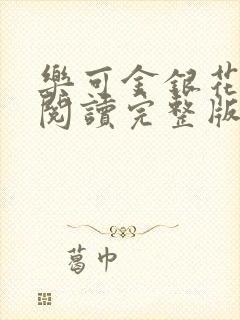 樂可金銀花
閱讀完整版
葛巾